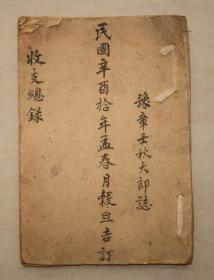 豫章壬秋大郎誌
民國辛酉拾年孟春月穀旦吉訂
收支總録